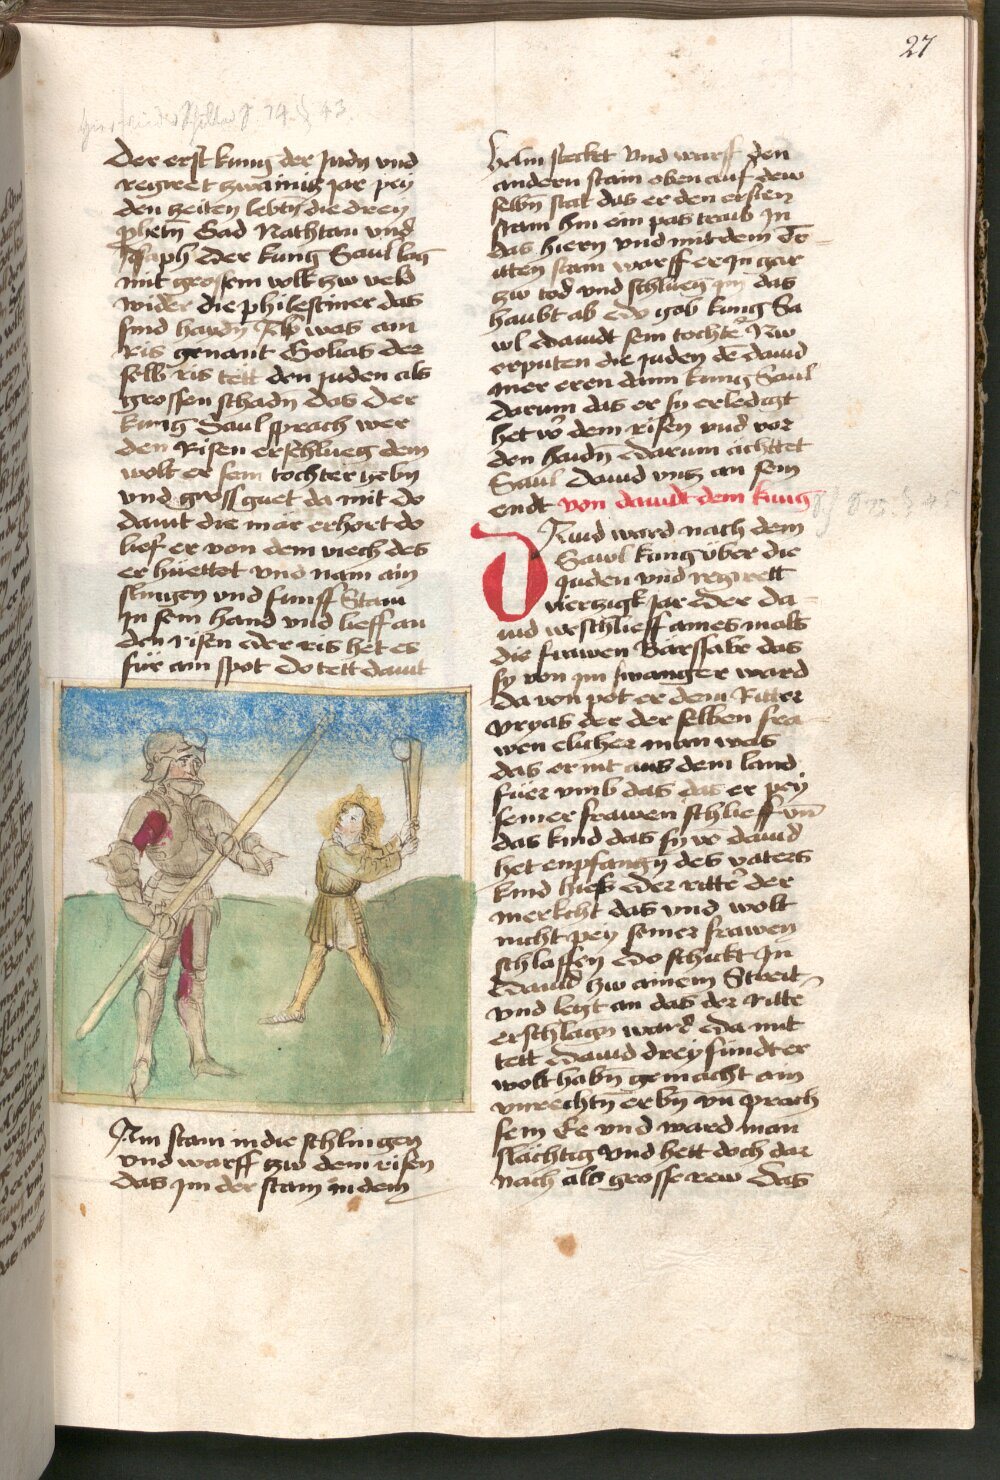 27
Der erst kung der Judn und
regiret zwainzig jar pey
den zeiten lebtn die drey
phetn Gad Nathan und
Asaph Der kung Saul lag
mit grossem volk zw veld
wider die philestiner das
sind haydn Nw was ain
Ris genant Golias der
selb ris tett den juden als
grossen schadn Das Der
kung Saul sprach wer
den Risen erschlueg dem
wolt er sein tochter gebn
und gross guet da mit do
davit die mär erhort do
lief er von dem viech des
er hüettet vnd nam ain
slingen vnd funff Stain
In sein hand vnd lieff an
den risen Der ris het es
für ain spot Do tett davit
Ain stain in die schlingen
vnd warff zw dem risen
das jm der stain in dem
helm stecket vnd warff den
andern stain oben auf dem
selbn stat das er den ersten
stain hin ein pas traib In
das hiern vnd mit dem dri=
tten stain warff er In gar
zw tod vnd schlueg jm das
haubt ab Do gab kung Sa
wl Davidt sein tochter Nw
erputen die juden de david
mer eren dann kung Saul
darum das er sy erledigt
het vor dem risen vnd vor
den haidn Darum ächttet
Saul David vnz an sein
endt von davidt dem kung
David ward nach dem
Sawl kung über die
juden vnd regirett
vierzigk jar Der da=
uid weschlieff aines mals
die frawen Barssabe das
sy von jm swanger ward
da von pot er dem Ritter
vryas der der selben fra
wen elicher man was
das er nit aus dem land
füer vmb das das er pey
seiner frawen schlieff vnd
das kind das sy von david
het enpfangn des vaters
kind hiess Der ritter der
merkcht das vnd wolt
nicht pey seiner frawen
schlaffen Do schickt In
David zw ainem Streit
vnd legt an das der ritter
erschlagn ward Da mit
tett David drey sündt er
wolt habn gemacht ain
vnrechtn erbn vn prach
sein Ee vnd ward man
slächtig vnd hett doch dar
nach als grosse rew Das